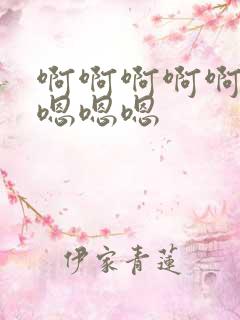 啊啊啊啊啊
嗯嗯嗯
伊家青莲